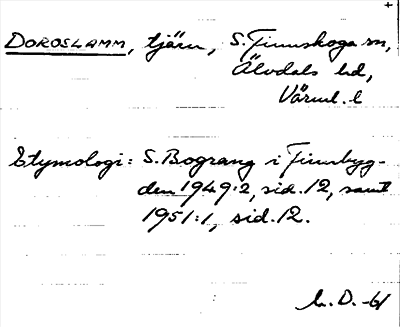 DOROSLAMM, tjärn, S. Finnskoga sn,
Älvdals hd,
Värml. l
Etymologi: S. Bograng i Finnbyg-
den 1949:2, sid. 12, samt
1951:1, sid. 12.
L. D. -61